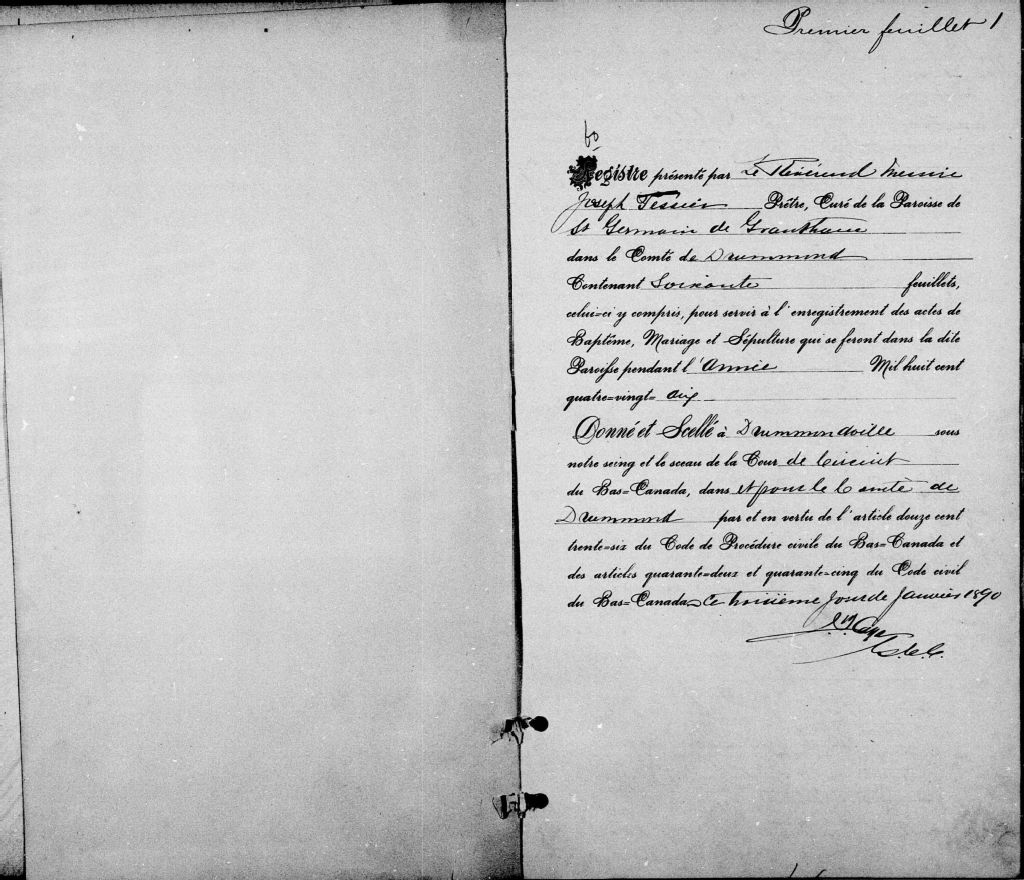 Premier feuillet 1
60
Registre présenté par Le Révérend Messire
Joseph Tessier Prêtre, Curé de la Paroisse de
St Germain de Grantham
dans le Comté de Drummond
Contenant Soixante feuillets,
celui=ci y compris, pour servir à l'enregistrement des actes de
Baptême, Mariage et Sépulture qui se feront dans la dite
Paroisse pendant l'Année Mil huit cent
quatre=vingt= dix
Donné et Scellé à Drummondville sous
notre seing et le sceau de la Cour de Circuit
du Bas=Canada, dans et pour le Comté de
Drummond par et en vertu de l'article douze cent
trente=six du Code de Procédure civile du Bas=Canada et
des articles quarante=deux et quarante=cinq du Code civil
du Bas=Canada, ce troisième jour de Janvier 1890